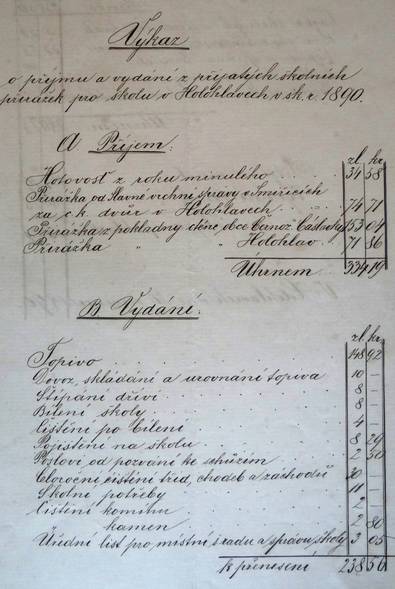 Výkaz
o příjmu a vydání z přijatých školních
přirážek pro školu v Holohlavech v sk. r. 1890.
A Příjem:
zl. kr.
Hotovost z roku minulého 34 58
Přirážka od slavné vrchní správy v Smiřicích
za c. k. dvůr v Holohlavech 74 71
Přirážka z pokladny ctěné obce Černož. Částovky 153 04
Přirážka " " Holohlav 71 86
Úhrnem 334 19
B Vydání:
zl. kr.
Topivo 148 92
Dovoz, skládání a urovnání topiva 10 —
Štípání dříví 8 —
Bílení školy 8 —
Čištění po bílení 4 —
Pojištění na školu 8 29
Poslovi od pozvání ke schůzím 2 50
Celoroční čištění tříd, chodeb a záchodů 30 —
Školní potřeby 11 —
Čištění komínu 2 —
" kamen 2 80
Úřední list pro místní š. radu a správu školy 3 05
k přenesení 238 56